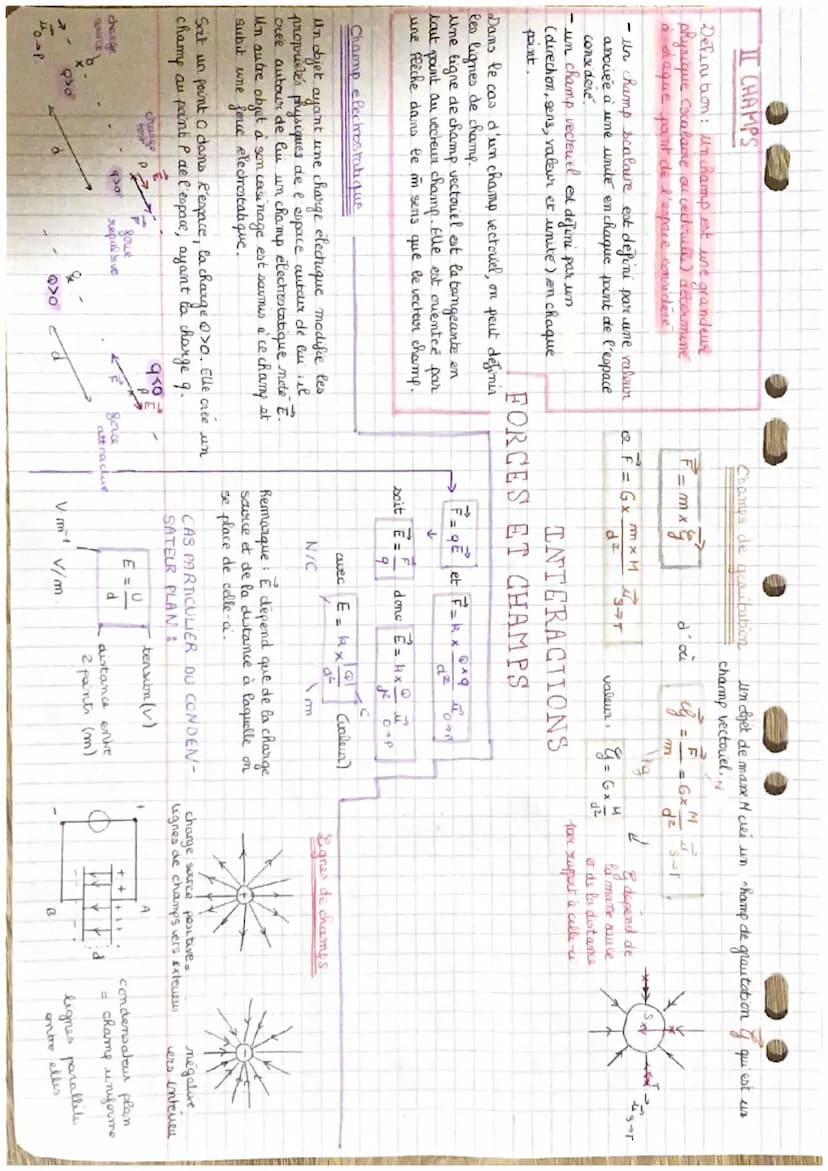 II CHAMPS
Définition : Un champ est une grandeur
physique (scalaire ou vectorielle) déterminée
à chaque point de l'espace considéré
- un champ scalaire est défini par une valeur
associée à une unité en chaque point de l'espace
considéré.
- un champ vectoriel est défini par un
(direction, sens, valeur et unité) en chaque
point.
Dans le cas d'un champ vectoriel, on peut définir
les lignes de champ.
Une ligne de champ vectoriel est la tangeante en
tout point au vecteur champ. Elle est orientée par
une flèche dans le m̄ sens que le vecteur champ.
Champ électrostatique
Un objet ayant une charge électrique modifie les
propriétés physiques de l'espace autour de lui : il
crée autour de lui un champ électrostatique noté E⃗.
Un autre objet à son voisinage est soumis à ce champ et
subit une force électrostatique.
Soit un point O dans l'espace, la charge Q>0. Elle crée un
champ au point P de l'espace, ayant la charge q.
charge
source
O
Q>0
u⃗ O→P
d
charge
test
P
E⃗
F⃗
q>0
force
répulsive
O
Q>0
d
q<0
P
E⃗
F⃗
force
attractive
FORCES ET CHAMPS
INTERACTIONS
Champs de gravitation
un objet de masse M crée un champ de gravitation G⃗ qui est un
champ vectoriel.
F⃗ = m × G⃗
d'où
G⃗ = F⃗/m = G × M/d² u⃗ S→T
N
kg
or F⃗ = G × m × M/d² u⃗ S→T
valeur : G = G × M/d²
G dépend de
la masse source
et de la distance
par rapport à celle-ci
S
T
u⃗ S→T
F⃗ = qE⃗ et F⃗ = k × Q×q/d² u⃗ O→P
soit E⃗ = F⃗/q donc E⃗ = k × Q/d² u⃗ O→P
avec E = k × |Q|/d² (valeur)
N/C
C
m
Remarque : E⃗ dépend que de la charge
source et de la distance à laquelle on
se place de celle-ci.
CAS PARTICULIER DU CONDEN-
SATEUR PLAN :
E = U/d
tension (V)
distance entre
2 points (m)
V.m⁻¹ V/m
Lignes de champs
+
-
charge source positive =
lignes de champs vers extérieur
négative
vers intérieur
+
A
+ + + +
d
-
B
condensateur plan
= champ uniforme
lignes parallèles
entre elles